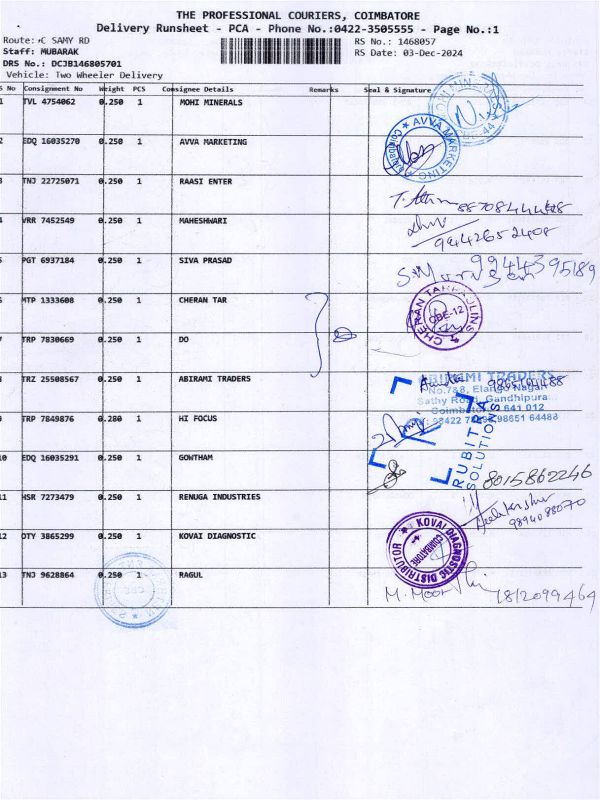 THE PROFESSIONAL COURIERS, COIMBATORE
Delivery Runsheet - PCA - Phone No.:0422-3505555 - Page No.:1
Route: C SAMY RD
RS No.: 1468057
Staff: MUBARAK
RS Date: 03-Dec-2024
DRS No.: DCJB146805701
Vehicle: Two Wheeler Delivery
S No Consignment No Weight PCS Consignee Details Remarks Seal & Signature
1 TVL 4754062 0.250 1 MOHI MINERALS
2 EDQ 16035270 0.250 1 AVVA MARKETING
AVVA MARKETING
3 TNJ 22725071 0.250 1 RAASI ENTER
4 VRR 7452549 0.250 1 MAHESHWARI
99442652408
5 PGT 6937184 0.250 1 SIVA PRASAD
9944395189
6 MTP 1333608 0.250 1 CHERAN TAR
CHERAN TARPAULINS
CBE-12
7 TRP 7830669 0.250 1 DO
8 TRZ 25508567 0.250 1 ABIRAMI TRADERS
ABIRAMI TRADERS
No.7&8, Elango Nagar
Sathy Road, Gandhipuram
Coimbatore 641 012
98651 64488
9 TRP 7849876 0.280 1 HI FOCUS
RUBITRA
SOLUTIONS
10 EDQ 16035291 0.250 1 GOWTHAM
8015862246
11 HSR 7273479 0.250 1 RENUGA INDUSTRIES
9894088070
12 OTY 3865299 0.250 1 KOVAI DIAGNOSTIC
KOVAI DIAGNOSTIC DISTRIBUTOR
COIMBATORE
13 TNJ 9628864 0.250 1 RAGUL